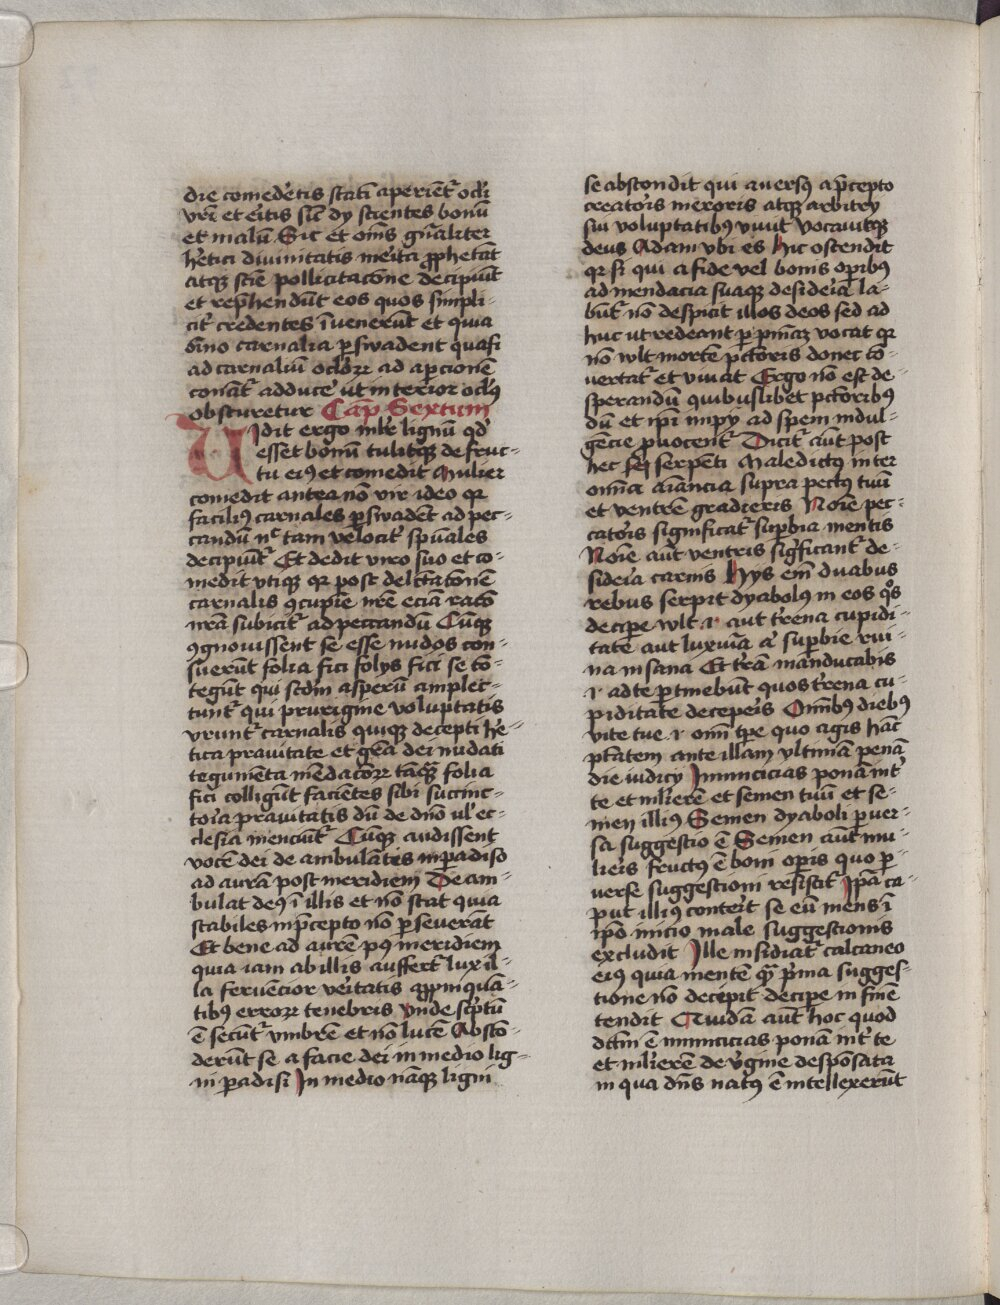 die comedet̄is stati᷒ aperiēt᷒ ocl̄i
vr̄i et er̄itis sic̄ dy scientes bonū
et malū Sic et om̄s gn̄aliter
hēt̄ici diuinitatis mēita ꝓphetāt
atqꝫ sciē pollicitacōne decipiūt
et rep̄hendūt eos quos simpli⸗
cit᷒ credentes īuenerūt et quia
oīno carnalia ꝑswadent quasi
ad carnaliū oclōꝝ ad aꝑcionē
conāt᷒ adducē ut interior ocl̄ꝰ
obscuretur Cap̄ Sextum
Uidit ergo ml̄r lignū qd̓
esset bonū tulitqꝫ de fruc⸗
tu eiꝰ et comedit Mulier
comedit antea nō vir ideo qr
faciliꝰ carnales ꝑswadēt ad pec⸗
candū nc̄ tam velocit᷒ sp̄uales
decipiūt᷒ Et dedit viro suo et co⸗
medit vtiqꝫ qr post delectatōnē
carnalis ꝯcupīe nr̄e eciā racō
nr̄a subicit᷒ ad peccandū Cūqꝫ
ꝯgnouissent se esse nudos con⸗
suerūt folia fici folys fici se cō⸗
tegūt qui sc̄dm asperū amplec⸗
tunt᷒ qui prurigine voluptatis
vrunt᷒ carnalis quiqꝫ decepti hē⸗
tica prauitate et gr̄a dei nudati
tegumēta mēdacōꝝ tāqꝫ folia
fici colligūt faciētes sibi succinc⸗
toīa prauitatis dū de dn̄o ul̓ ec⸗
clesia menciūt᷒ Cūqꝫ audissent
vocē dei de ambulātis in ꝑadiso
ad aurā post meridiem De am⸗
bulat deꝰ ī illis et nō stat quia
stabiles in p̄cepto nō ꝑseuerāt
Et bene ad aurē pꝰ meridiem
quia iam ab illis auffert᷒ lux il⸗
la feruēcior vēitatis aꝓpinquā⸗
tibꝰ erroꝝ tenebris Vnde sc̄ptū
ē secūt᷒ vmbrē et nō lucē Abscō⸗
derūt se a facie dei in medio lig⸗
ni ꝑadisi In medio nāqꝫ ligni
se abscondit qui auersꝰ a p̄cepto
creatoīs in erroris atqꝫ arbitry
sui voluptatibꝰ viuit Vocauitqꝫ
deus Adam vbi es hic ostendit
qr si qui a fide vel bonis oꝑibꝰ
ad mendacia suaqꝫ desideīa la⸗
būt᷒ nō despicit illos deos sed ad
huc ut redeant ꝑ pn̄iaꝫ vocat qr
nō wlt mortē pctōris donec cō⸗
uertat᷒ et viuat Ergo nō est de⸗
sperandū quibuslibet pctōribꝰ
dū et ip̄i impy ad spem indul⸗
gēcie ꝓuocent᷒ Dicit᷒ aūt post
hec serpēti Maledictꝰ inter
omīa aīancia supra pectꝰ tuū
et ventrē gradieris Noīe pec⸗
catōis significat᷒ suꝑbia mentis
Noīe aūt ventris sig̓ficant᷒ de⸗
sideīa carnis Hys em̄ duabus
rebus serpit dyabolꝰ in eos qͦs
deciꝑe wlt ⁊ aut t̄rena cupidi⸗
tate aut luxuīa a᷒ suꝑbie rui⸗
na insana Et t̄rā manducabis
⁊ ad te ꝑtinebūt quos t̄rena cu⸗
piditate decepeīs Om̄ibꝰ diebꝰ
vite tue ⁊ om̄i tp̄e quo agis hāc
p̄tātem ante illam vltimā penā
die iudicy Inimicicias ponā int᷒
te et ml̄ierē et semen tuū et se⸗
men illiꝰ Semen dyaboli ꝑuer⸗
sa suggestio ē Semen aūt mu⸗
lieīs fructꝰ ē boni oꝑis quo ꝑ⸗
verse suggestioni resistit᷒ Ip̄a ca⸗
put illiꝰ conteīt se eū mens ī
ip̄o inicio male suggestionis
excludit Ille insidiat᷒ calcaneo
eiꝰ quia mentē qͣ pͥma sugges⸗
tione nō decepit deciꝑe in fine
tendit Quidā aūt hoc quod
dc̄m ē inimicicias ponā int᷒ te
et ml̄ierē de v̓gine despōsata
in qua dn̄s natꝰ ē intellexerūt